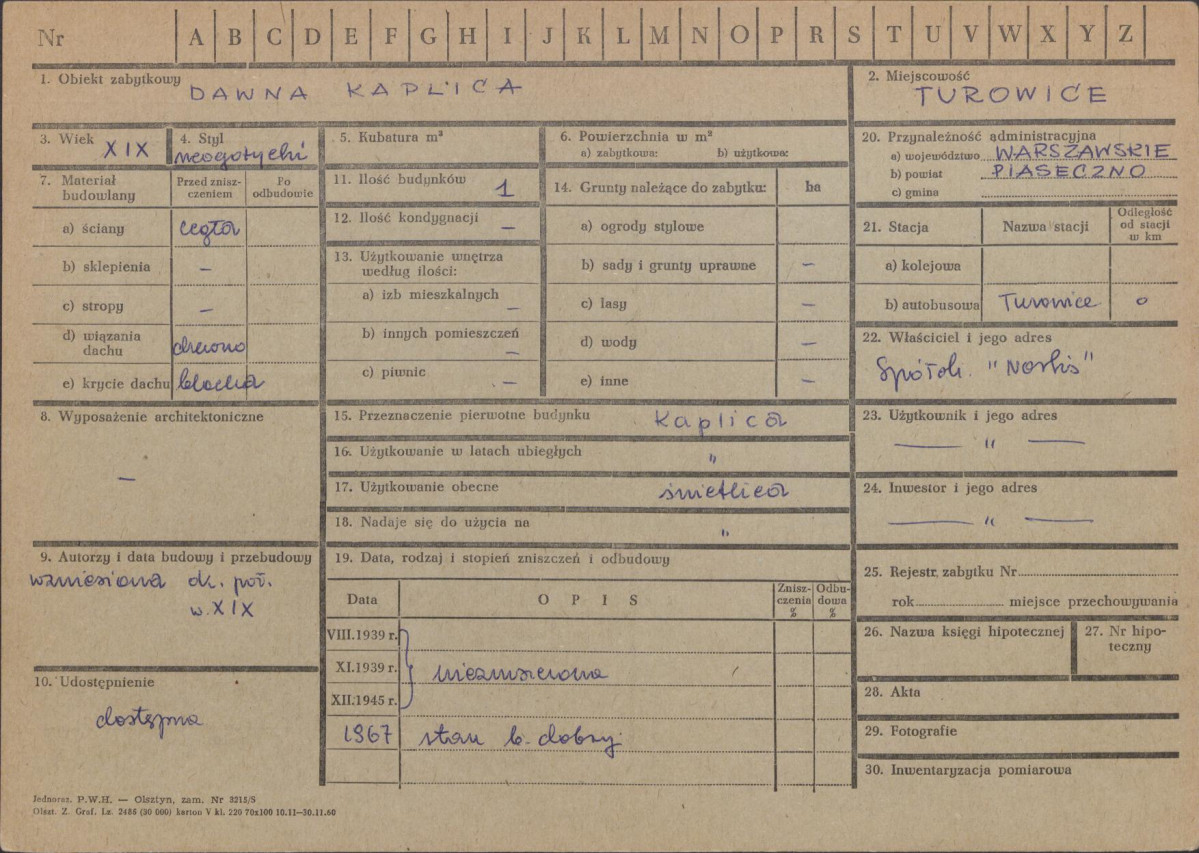 Nr A B C D E F G H I J K L M N O P R S T U V W X Y Z
1. Obiekt zabytkowy DAWNA KAPLICA
2. Miejscowość
TUROWICE
3. Wiek XIX
4. Styl
neogotycki
5. Kubatura m³
6. Powierzchnia w m²
a) zabytkowa: b) użytkowa:
20. Przynależność administracyjna
a) województwo WARSZAWSKIE
b) powiat PIASECZNO
c) gmina
7. Materiał budowlany
Przed zniszczeniem
Po odbudowie
a) ściany cegła
b) sklepienia –
c) stropy –
d) wiązania dachu drewno
e) krycie dachu blacha
11. Ilość budynków 1
12. Ilość kondygnacji –
13. Użytkowanie wnętrza
według ilości:
a) izb mieszkalnych –
b) innych pomieszczeń –
c) piwnic –
14. Grunty należące do zabytku: ha
a) ogrody stylowe
b) sady i grunty uprawne –
c) lasy –
d) wody –
e) inne –
21. Stacja Nazwa stacji Odległość od stacji w km
a) kolejowa
b) autobusowa Turowice 0
22. Właściciel i jego adres
8. Wyposażenie architektoniczne
–
15. Przeznaczenie pierwotne budynku kaplica
16. Użytkowanie w latach ubiegłych "
17. Użytkowanie obecne świetlica
18. Nadaje się do użycia na "
23. Użytkownik i jego adres
— " —
24. Inwestor i jego adres
— " —
9. Autorzy i data budowy i przebudowy
wzniesiona dr. poł.
w. XIX
19. Data, rodzaj i stopień zniszczeń i odbudowy
Data OPIS Zniszczenia % Odbudowa %
VIII.1939 r.
XI.1939 r. niezniszczona
XII.1945 r.
1967 stan b. dobry
10. Udostępnienie
dostępna
25. Rejestr zabytku Nr
rok miejsce przechowywania
26. Nazwa księgi hipotecznej
27. Nr hipoteczny
28. Akta
29. Fotografie
30. Inwentaryzacja pomiarowa
Jednoraz. P.W.H. — Olsztyn, zam. Nr 3215/S
Olszt. Z. Graf. Lz. 2486 (30 000) karton V kl. 220 70x100 10.11—30.11.60